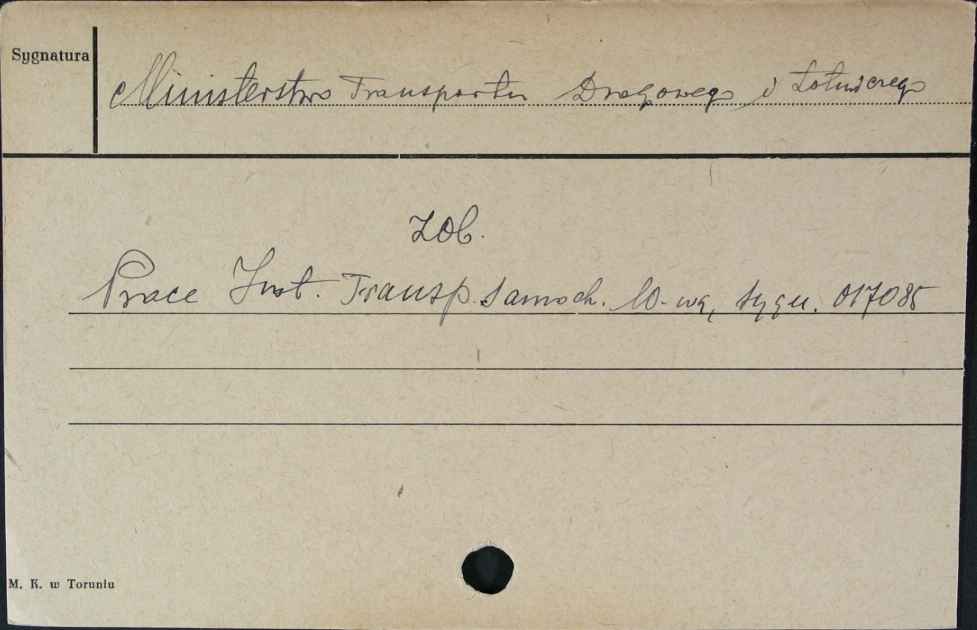 Sygnatura
Ministerstwo Transportu Drogowego i Lotniczego
zob.
Prace Inst. Transp. Samoch. W-wa, sygn. 017085
M. K. w Toruniu